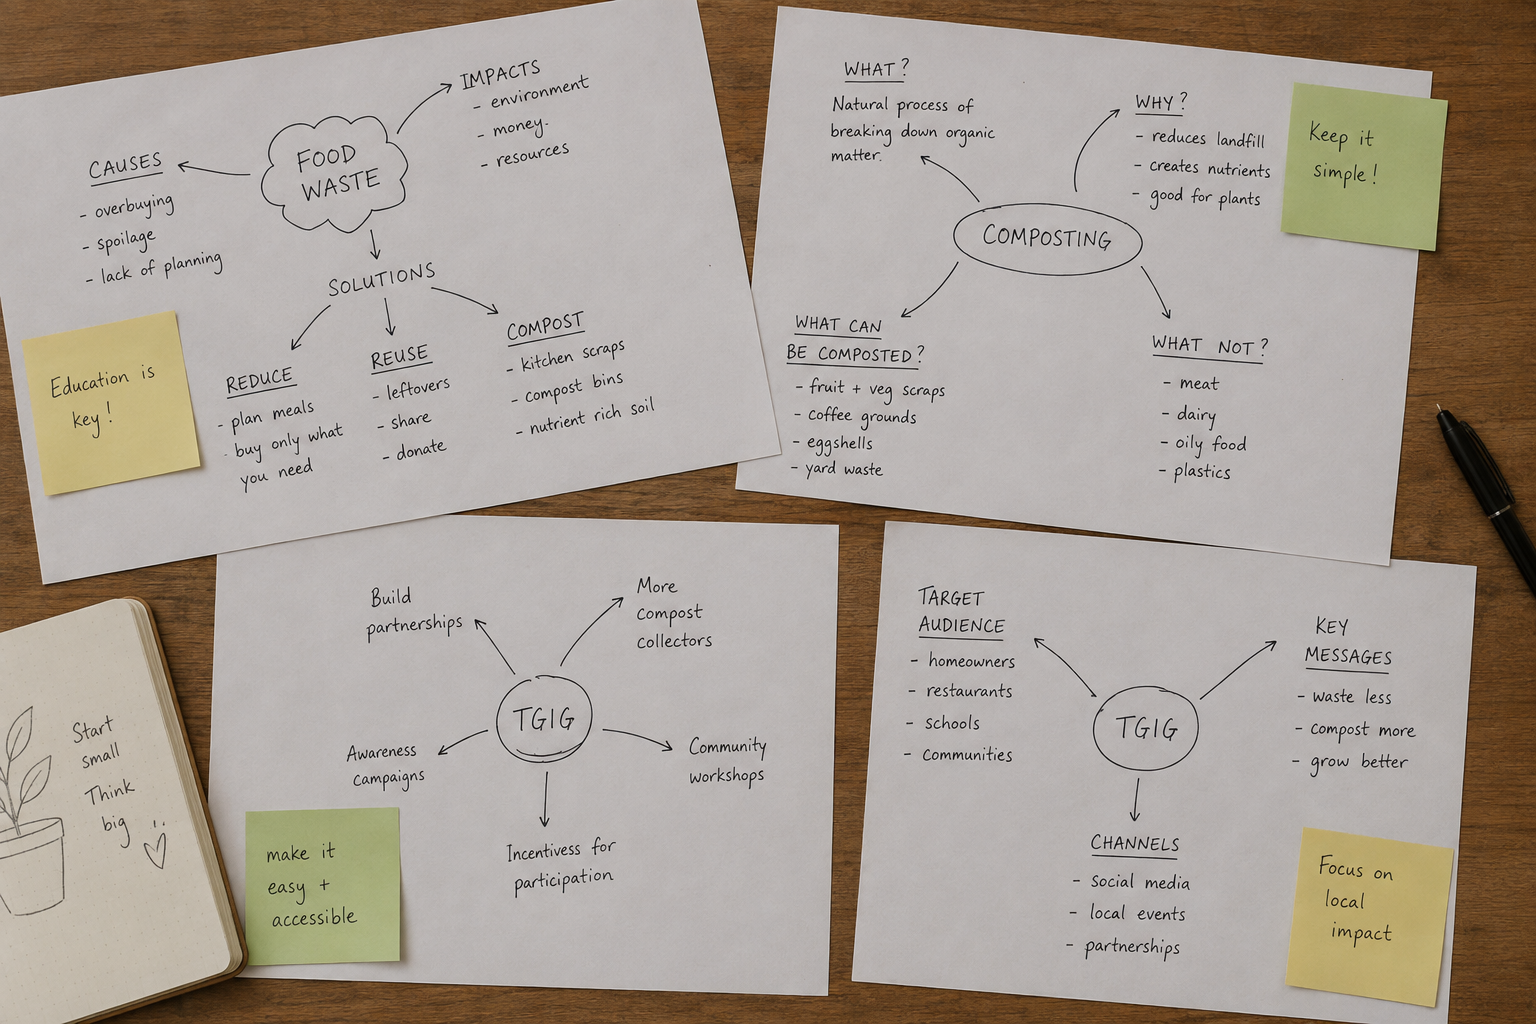 FOOD
WASTE
IMPACTS
- environment
- money.
- resources
CAUSES
- overbuying
- spoilage
- lack of planning
SOLUTIONS
REDUCE
- plan meals
- buy only what
you need
REUSE
- leftovers
- share
- donate
COMPOST
- kitchen scraps
- compost bins
- nutrient rich soil
Education is
key!
WHAT?
Natural process of
breaking down organic
matter.
WHY?
- reduces landfill
- creates nutrients
- good for plants
COMPOSTING
WHAT CAN
BE COMPOSTED?
- fruit + veg scraps
- coffee grounds
- eggshells
- yard waste
WHAT NOT?
- meat
- dairy
- oily food
- plastics
Keep it
simple!
Start
small
Think
big
Build
partnerships
More
compost
collectors
TGIG
Awareness
campaigns
Community
workshops
Incentivess for
participation
make it
easy +
accessible
TARGET
AUDIENCE
- homeowners
- restaurants
- schools
- communities
KEY
MESSAGES
- waste less
- compost more
- grow better
TGIG
CHANNELS
- social media
- local events
- partnerships
Focus on
local
impact